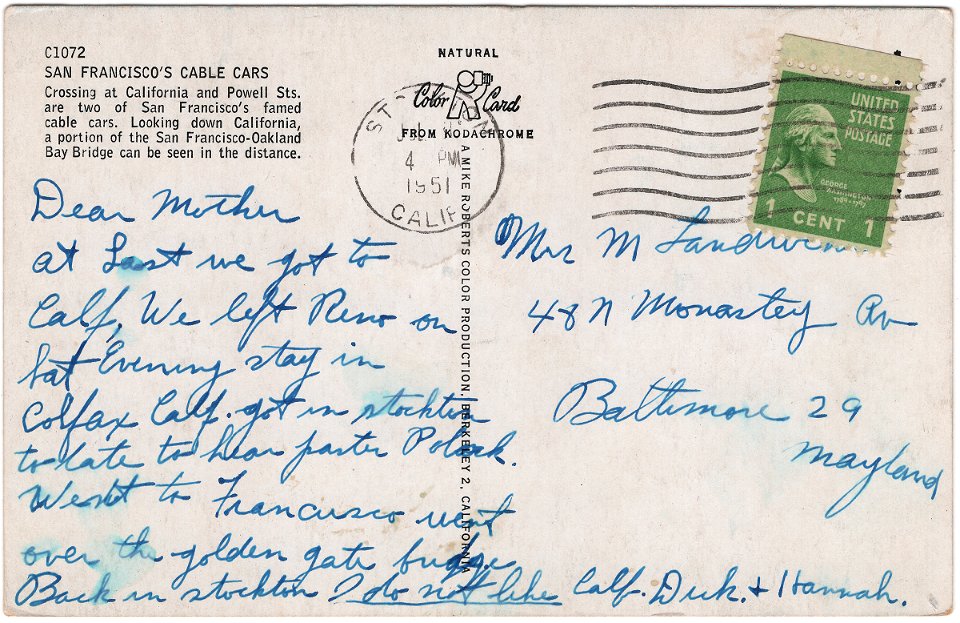 C1072
SAN FRANCISCO'S CABLE CARS
Crossing at California and Powell Sts.
are two of San Francisco's famed
cable cars. Looking down California,
a portion of the San Francisco-Oakland
Bay Bridge can be seen in the distance.
NATURAL
Color Card
FROM KODACHROME
CALIF
4 PM
1951
UNITED
STATES
POSTAGE
GEORGE
WASHINGTON
1 CENT 1
A MIKE ROBERTS COLOR PRODUCTION, BERKELEY 2, CALIFORNIA
Dear Mother
at Last we got to
Calf, We left Reno on
Sat Evening stay in
Colfax Calf. got in stockton
to late to hear paster Polock.
Went to Francisco went
over the golden gate bridge
Back in stockton I do not like Calf. Dick. & Hannah.
Mrs M
48 N Monastey Av
Baltimore 29
Mayland